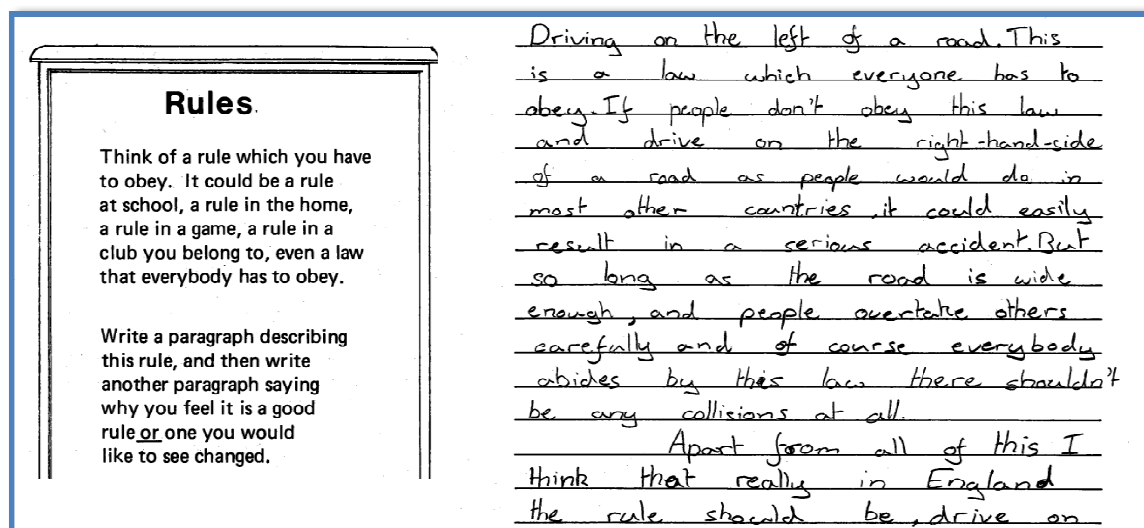 Rules.
Think of a rule which you have
to obey. It could be a rule
at school, a rule in the home,
a rule in a game, a rule in a
club you belong to, even a law
that everybody has to obey.
Write a paragraph describing
this rule, and then write
another paragraph saying
why you feel it is a good
rule or one you would
like to see changed.
Driving on the left of a road. This
is a law which everyone has to
obey. If people don't obey this law
and drive on the right-hand-side
of a road as people would do in
most other countries, it could easily
result in a serious accident. But
so long as the road is wide
enough, and people overtake others
carefully and of course everybody
abides by this law there shouldn't
be any collisions at all.
Apart from all of this I
think that really in England
the rule should be, drive on